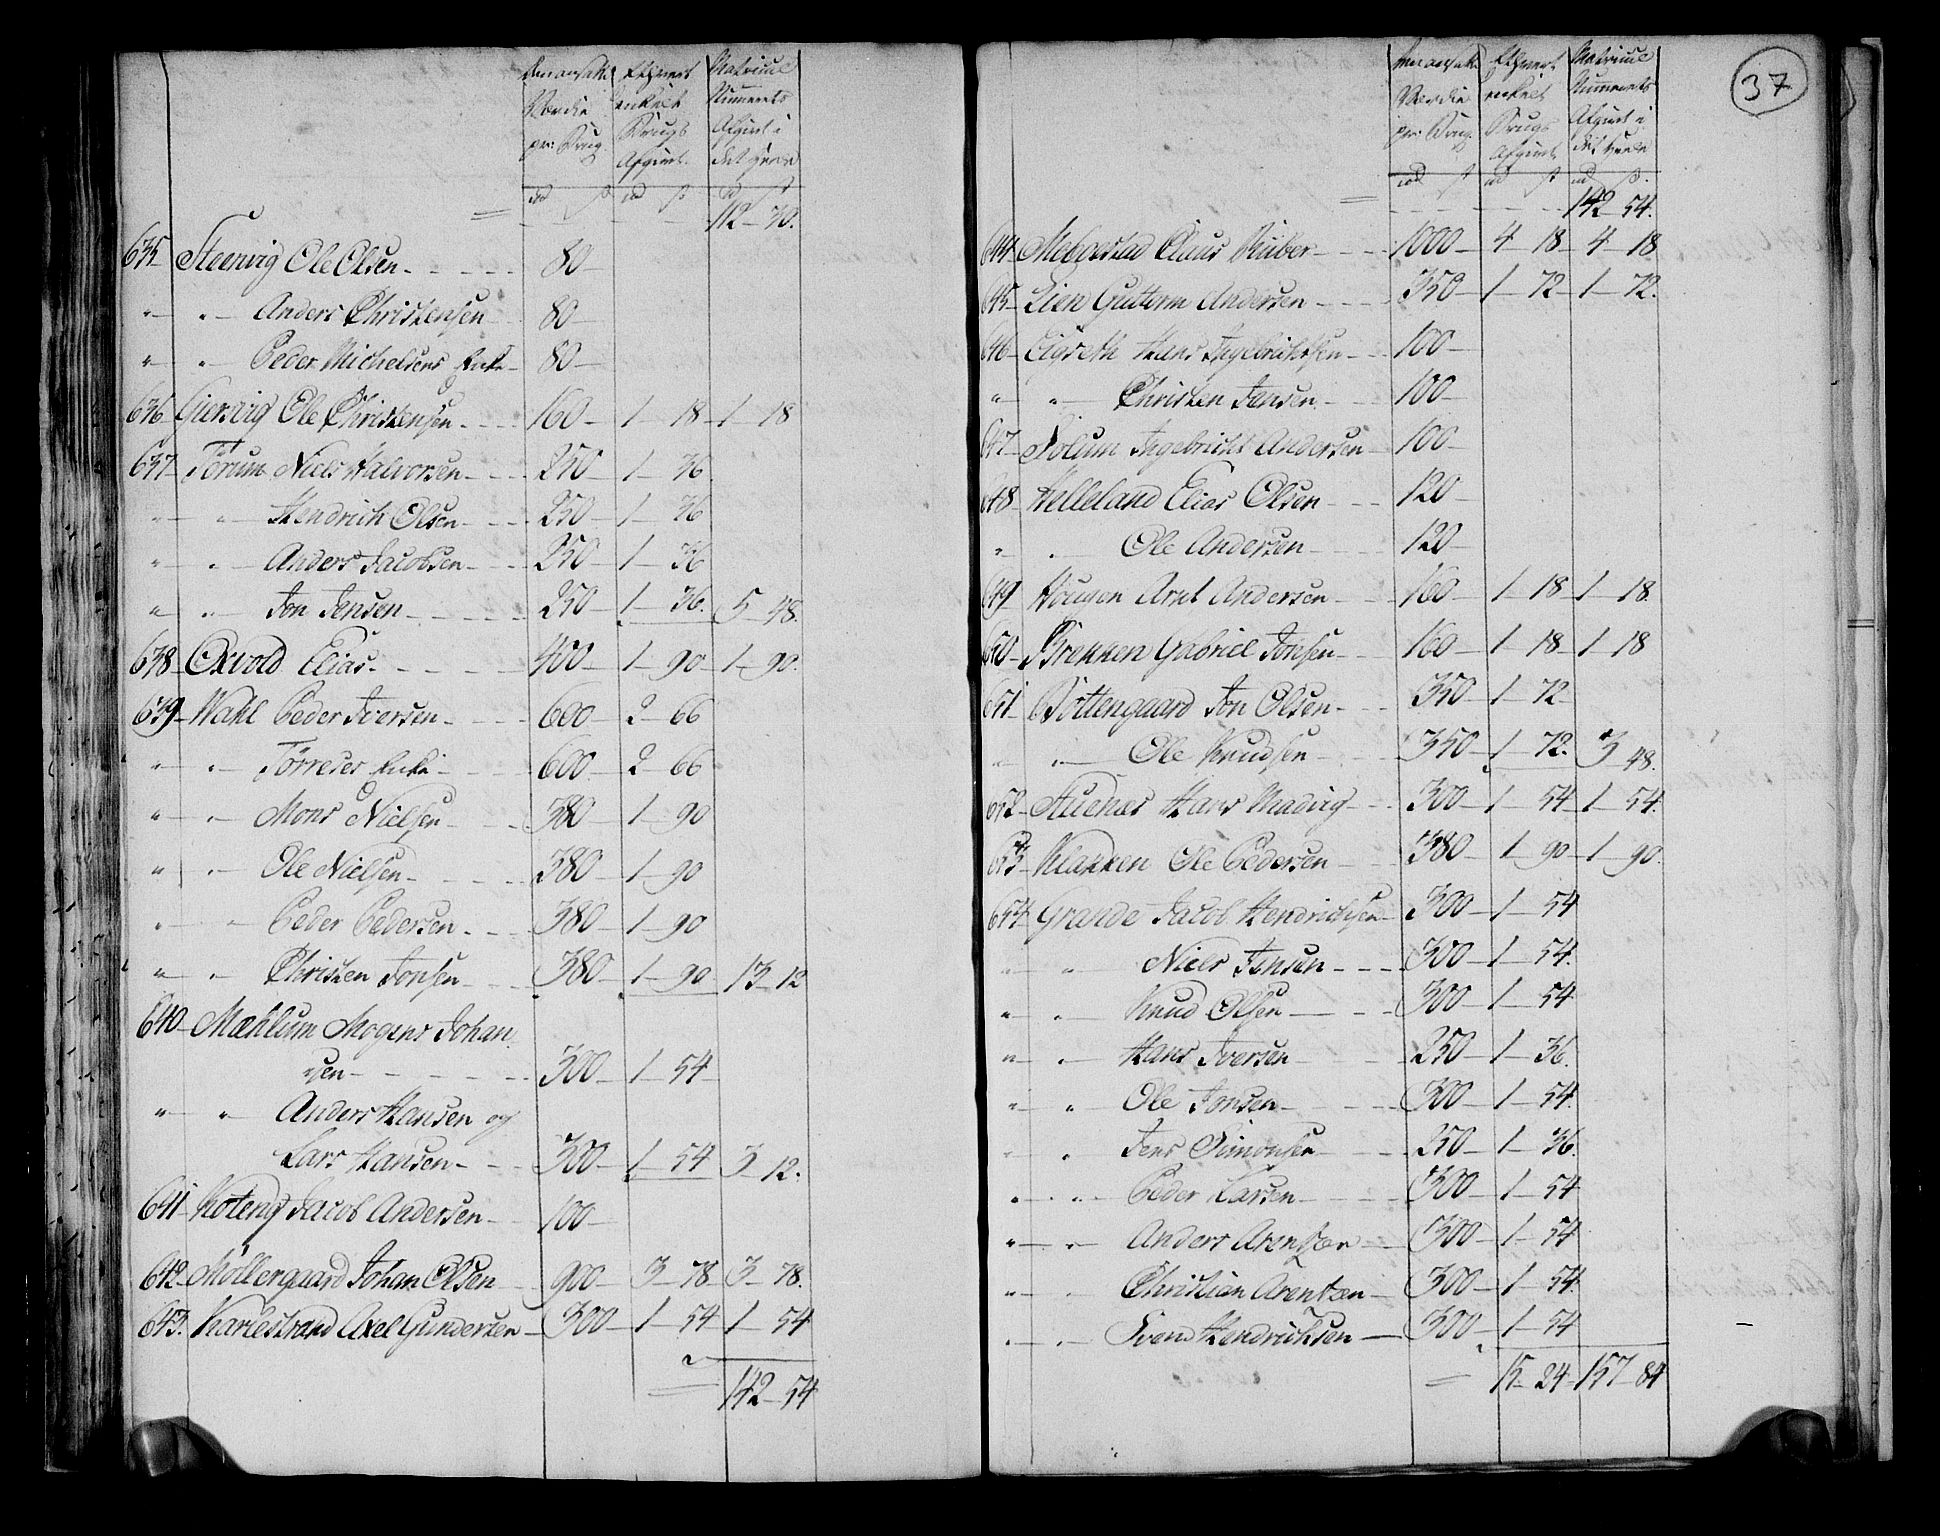 Værdie
pr: Brug.
enkelt
Brugs
Afgivt.
Matricul
Nummerets
Afgivt i
det heele
112 - 70.
635 Steenvig Ole Olsen - 80 -
" " Anders Christensen 80 -
" " Peder Michelsens Enke - 80 -
636 Giersvig Ole Christensen - 160 - 1 - 18 - 1 - 18
637 Forum Niels Halvorsen - 250 - 1 - 36
" " Hendrich Olsen - 250 - 1 - 36
" " Anders Jacobsen - 250 - 1 - 36
" " Jon Jensen - 250 - 1 - 36. 5 - 48.
638 Oxvold Elias - 400 - 1 - 90 - 1 - 90.
639 Wahl Peder Iversen - 600 - 2 - 66
" " Törreses Enke - 600 - 2 - 66
" " Mons Nielsen - 380 - 1 - 90
" " Ole Nielsen - 380 - 1 - 90
" " Peder Pedersen - 380 - 1 - 90
" " Christen Jonsen - 380 - 1 - 90 13 - 12
640 Mæhlum Mogens Johan
sen - 300 - 1 - 54
" " Anders Hansen og
Lars Hansen - 300 - 1 - 54 3 - 12.
641 Koteng Jacob Andersen - 100 -
642 Möllergaard Johan Olsen 900 - 3 - 78 3 - 78.
643. Karlestrand Axel Gundersen - 300 - 1 - 54 1 - 54
142 - 54
37
Værdie
pr: Brug.
enkelt
Brugs
Afgivt
Matricul
Nummerets
Afgivt i
det heele
142 - 54.
644 Claus - 1000 - 4 - 18 - 4 - 18
645 Lien Guttorm Andersen - 350 - 1 - 72 - 1 - 72.
646 Hans Ingebrichtsen - 100 -
" " Christen Jensen - 100 -
647 Solum Ingebricht Andersen - 100 -
648 Helleland Elias Olsen - 120 -
" " Ole Andersen - 120 -
649 Hougen Arnt Andersen - 160 - 1 - 18 - 1 - 18.
650 Brekken Gabriel Jonsen - 160 - 1 - 18 - 1 - 18
651 Böttengaard Jon Olsen - 350 - 1 - 72 -
" " Ole Knudsen - 350 - 1 - 72. 3 48.
652 Hans Madvig - 300 - 1 - 54 - 1 - 54.
653 Klakken Ole Pedersen - 380 - 1 - 90 - 1 - 90.
654 Grande Jacob Hendrichsen - 300 - 1 - 54
" " Niels Jensen - 300 - 1 - 54.
" " Knud Olsen - 300 - 1 - 54
" " Hans Iversen - 250 - 1 - 36.
" " Ole Jonsen - 300 - 1 - 54.
" " Jens Simonsen - 250 - 1 - 36.
" " Peder Larsen - 300 - 1 - 54
" " Anders Arentzen - 300 - 1 - 54
" " Christian Arentzen - 300 - 1 - 54.
" " Svend Hendrichsen - 300 - 1 - 54
15 - 24 - 157 - 84